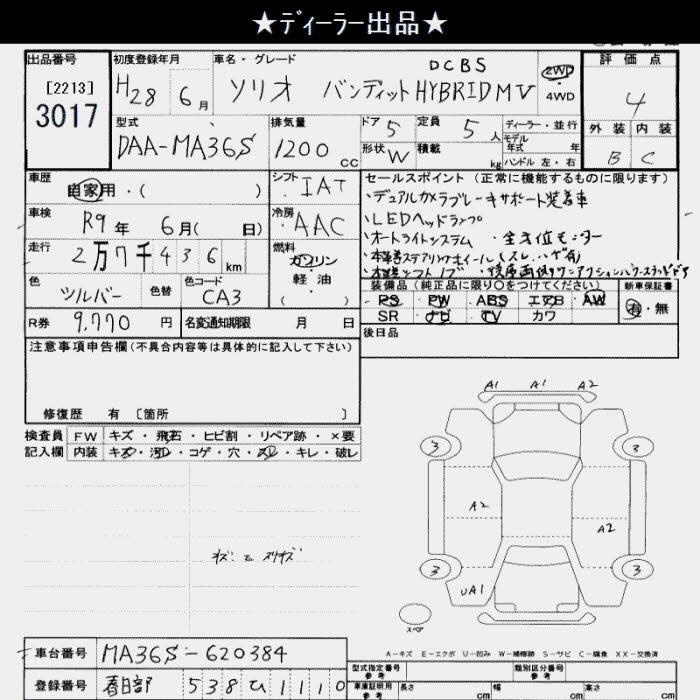 ★ディーラー出品★
出品番号 初度登録年月 車名・グレード 評価点
[2213] 3017
H28 6月
ソリオ バンディット HYBRID MV DCBS
2WD ・ 4WD
4
外装 内装
B C
型式 排気量 ドア 5 定員 5人 ディーラー・並行
DAA-MA36S 1200cc 形状 W 積載 kg モデル年式 年
ハンドル 左・右
車歴 自家用・( )
シフト IAT
セールスポイント(正常に機能するものに限ります)
・デュアルカメラブレーキサポート装着車
・LEDヘッドランプ
・オートライトシステム ・全方位モニター
車検 R9年 6月( 日)
冷房 AAC
走行 2万7千436km
燃料 ガソリン・軽油・( )
色 シルバー 色替 色コード CA3
装備品(純正品に限り○をつけてください) 新車保証書
PS PW ABS エアB AW 有・無
SR ナビ TV カワ
R券 9,770円 名変通知期限 月 日
後日品
注意事項申告欄(不具合内容等は具体的に記入して下さい)
修復歴 有 〔箇所 〕
検査員 FW キズ・飛石・ヒビ割・リペア跡・×要
記入欄 内装 キズ・汚レ・コゲ・穴・スレ・キレ・破レ
A1 A1 A2
3 3
A2
A2
3 3
UA1
スペア
A-キズ E-エクボ U-凹み W-補修跡 S-サビ C-腐食 XX-交換済
車台番号 MA36S-620384
登録番号 春日部 538 ひ 1110
型式指定番号 参考 類別区分番号 参考
車庫証明用 参考 長さ cm 幅 cm 高さ cm